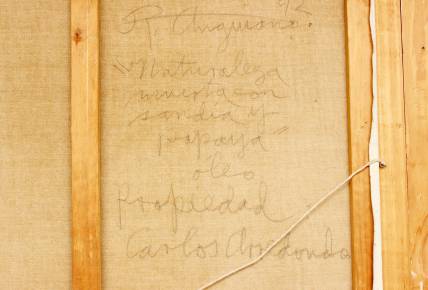 R. Anguiano. 92
"Naturaleza
muerta con
sandía y
papaya"
oleo
Propiedad
Carlos Arredondo